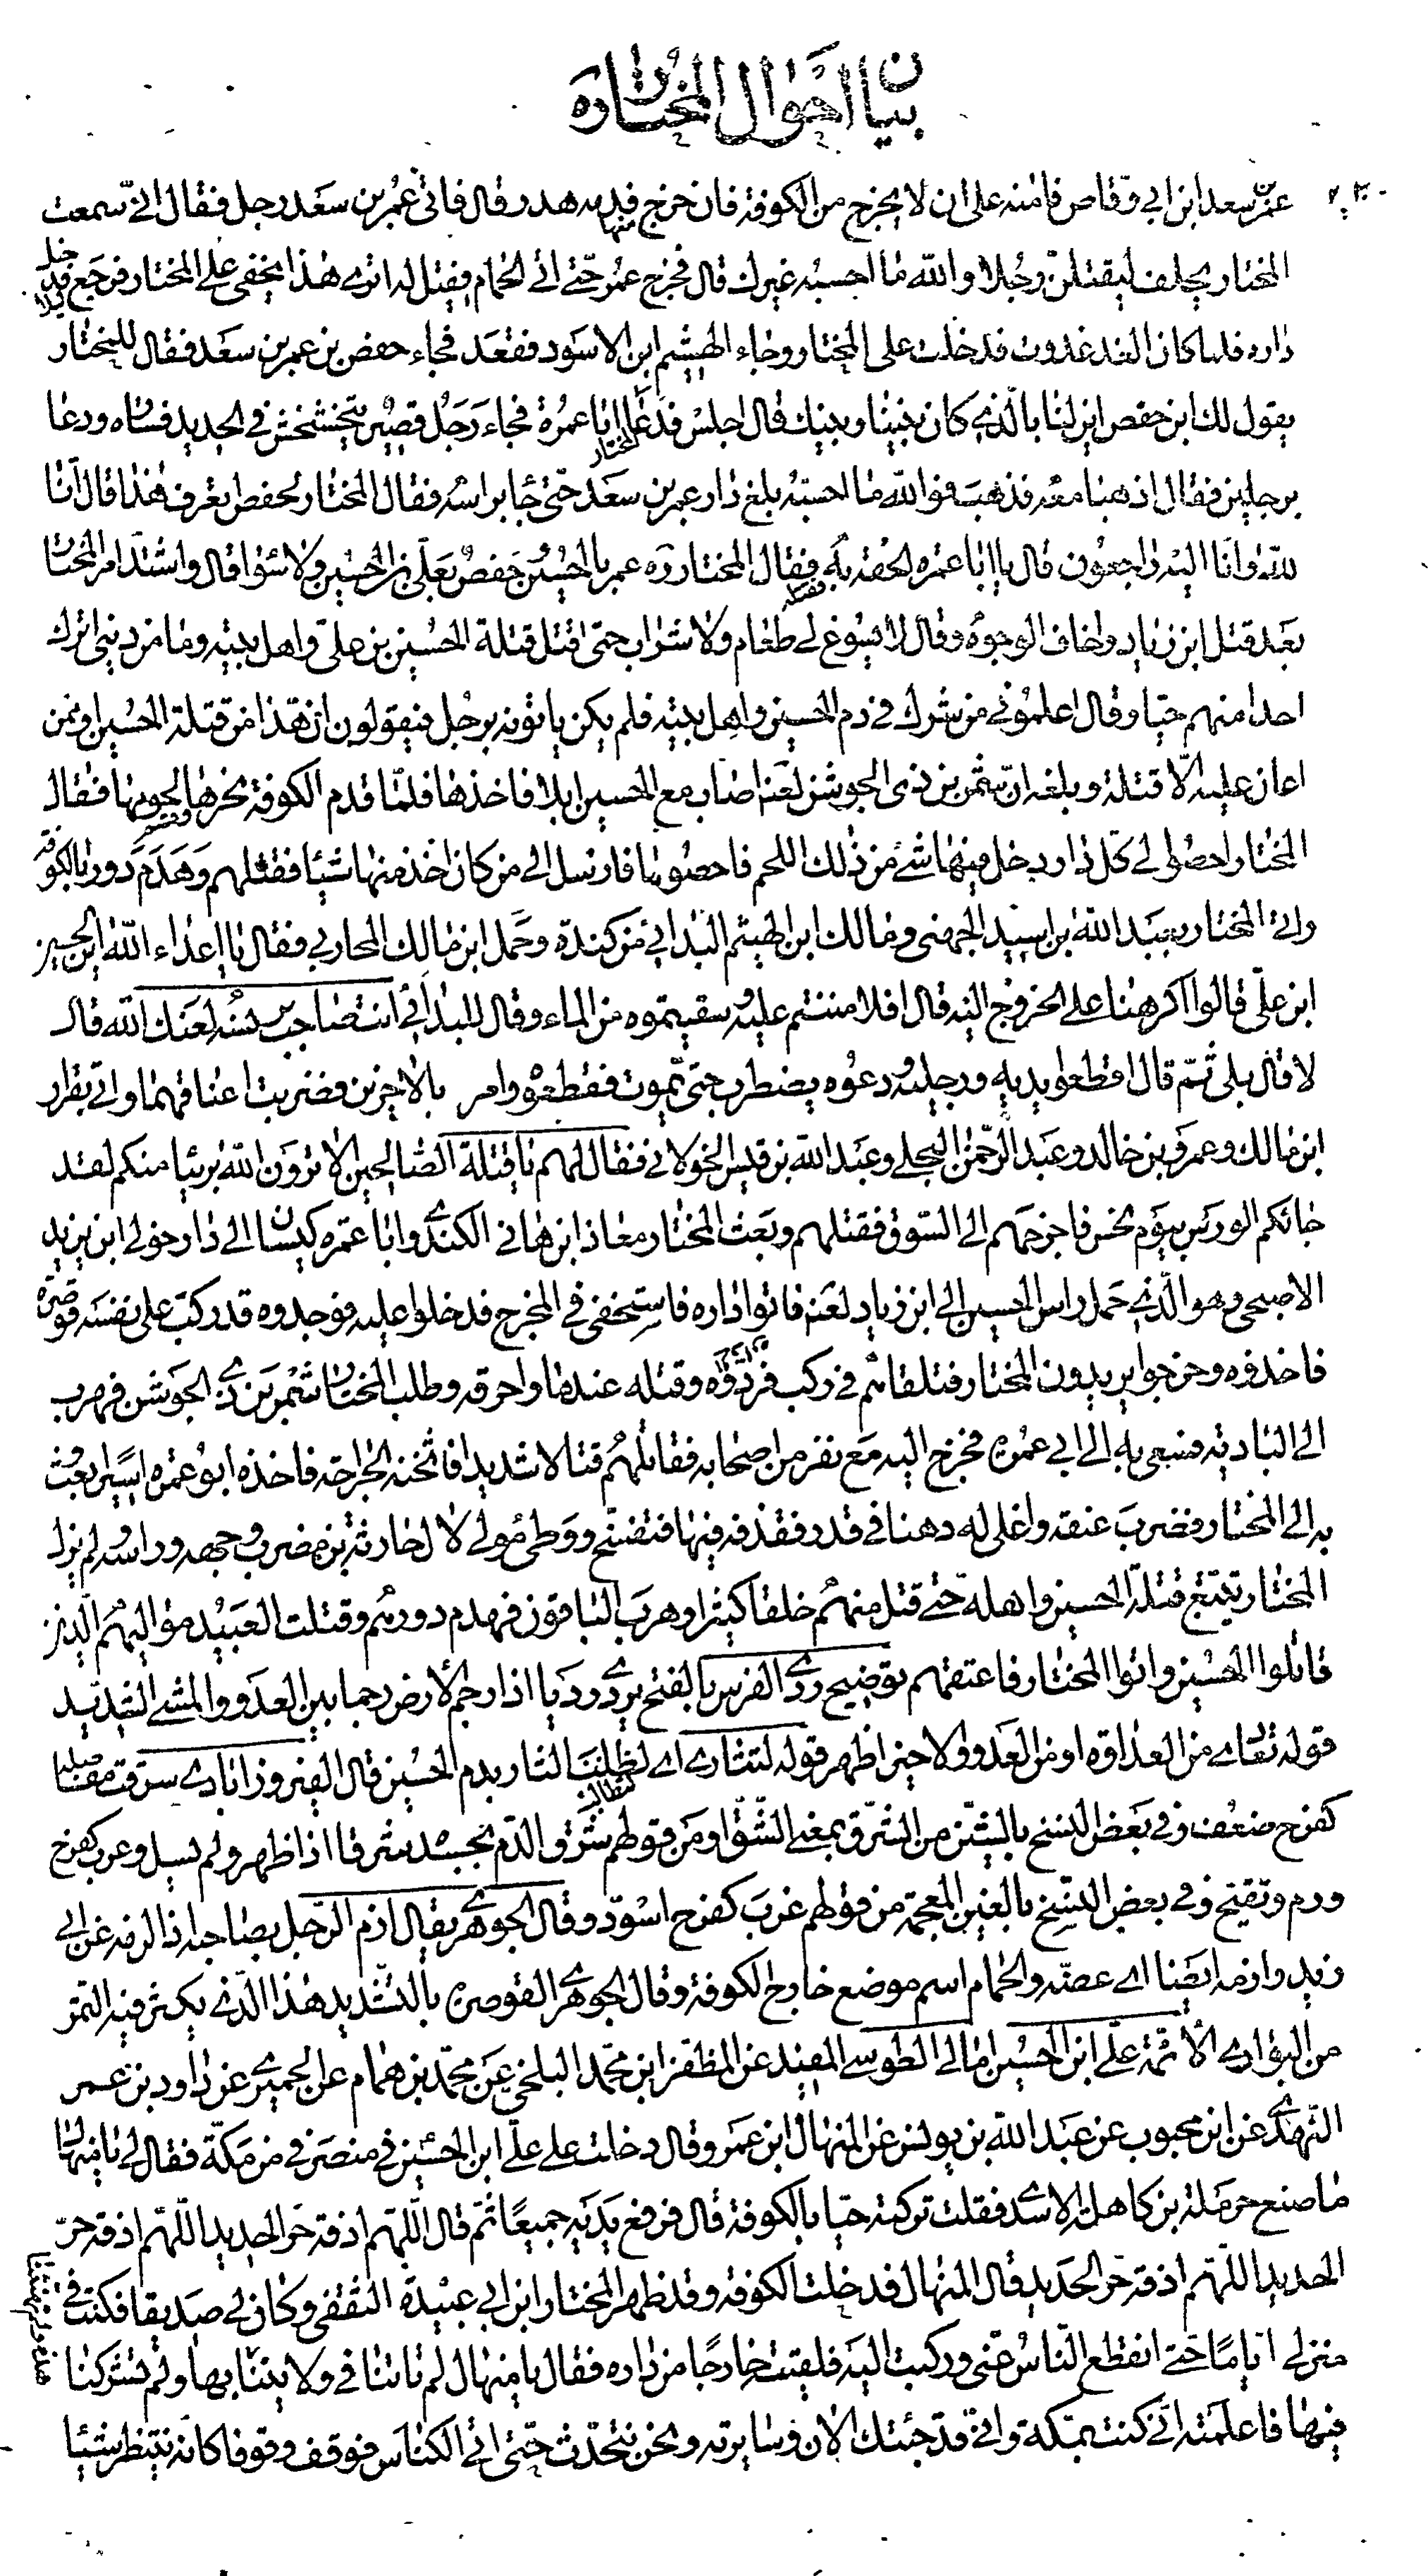 بيان احوال المختاره
عمر بن سعد ابن ابي وقاص فامنه على ان لا يخرج من الكوفة فان خرج منها فدمه هدر قال فاتى عمر بن سعد رجل فقال اني سمعت
المختار يحلف ليقتلن رجلا والله ما احسبه غيرك قال فخرج عمر حتى اتى الحمام فقيل له اترى هذا يخفى على المختار فرجع ليلا فدخل
داره فلما كان الغد غدوت فدخلت على المختار وجاء الهيثم ابن الاسود فقعد فجاء حفص بن عمر بن سعد فقال للمختار
يقول لك ابو حفص انزلنا بالذي كان بيننا وبينك قال اجلس فدعا المختار ابا عمرة فجاء رجل قصير يتخشخش في الحديد فساره ودعا
برجلين فقال اذهبا معه فذهب فوالله ما احسبه بلغ دار عمر بن سعد حتى جاء براسه فقال المختار لحفص اتعرف هذا قال انا
لله وانا اليه راجعون قال يا ابا عمره الحقه به فقتله فقال المختار ره عمر بالحسين وحفص بعلي بن الحسين ولا سواء قال واشتد امر المختار
بعد قتل ابن زياد واخاف الوجوه وقال لا يسوغ لي طعام ولا شراب حتى اقتل قتلة الحسين بن علي واهل بيته وما من ديني اترك
احدا منهم حيا وقال اعلموني من شرك في دم الحسين واهل بيته فلم يكن ياتونه برجل فيقولون ان هذا من قتلة الحسين او ممن
اعان عليه الا قتله وبلغه ان شمر بن ذي الجوشن لعنه اصاب مع الحسين ابلا فاخذها فلما قدم الكوفة نحرها وقسم لحومها فقال
المختار احصوا لي كل دار دخل فيها شئ من ذلك اللحم فاحصوها فارسل الى من كان اخذ منها شيئا فقتلهم وهدم دورا بالكوفة
واتى المختار بعبد الله بن اسيد الجهني ومالك ابن الهيثم البدائي من كندة وحمل ابن مالك المحاربي فقال يا اعداء الله اين الحسين
ابن علي قالوا اكرهنا على الخروج اليه قال افلا مننتم عليه وسقيتموه من الماء وقال للبدائي انت صاحب برنسه لعنك الله قال
لا قال بلى ثم قال اقطعوا يديه ورجليه ودعوه يضطرب حتى يموت فقطعوه وامر بالاخرين فضربت اعناقهما واتي بقراد
ابن مالك وعمرو بن خالد وعبد الرحمن البجلي وعبد الله بن قيس الخولاني فقال لهم يا قتلة الصالحين الا ترون الله بريئا منكم لقد
جائكم الورس بيوم نحس فاخرجهم الى السوق فقتلهم وبعث المختار معاذ ابن هاني الكندي وابا عمره كيسان الى دار خولي ابن يزيد
الاصبحي وهو الذي حمل راس الحسين الى ابن زياد لعنه فاتوا داره فاستخفى في المخرج فدخلوا عليه فوجدوه قد ركب على نفسه قوصرة
فاخذوه وخرجوا يريدون المختار فتلقاهم في ركب فردوه الى داره وقتله عندها واحرقه وطلب المختار شمر بن ذي الجوشن فهرب
الى البادية فسعى به الى ابي عمره فخرج اليه مع نفر من اصحابه فقاتلهم قتالا شديدا فاثخنته الجراحة فاخذه ابو عمره اسيرا بعث
به الى المختار فضرب عنقه واغلى له دهنا في قدر فقذفه فيها فتفسخ ووطئ مولى لال حارثة بن مضرب وجهه وراسه ولم يزل
المختار يتتبع قتلة الحسين واهله حتى قتل منهم خلقا كثيرا وهرب الباقون فهدم دورهم وقتلت العبيد مواليهم الذين
قاتلوا الحسين واتوا المختار فاعتقهم توضيح ردى الفرس بالفتح يردى رديا اذا رجم الارض رجما بين العدو والمشي الشديد
قوله تعادى من العداوة او من العدو والاخير اظهر قوله لنثارى اي لطلبنا الثار بدم الحسين قال الفيروزابادي سرقت مفاصله
كفرح ضعف وفي بعض النسخ بالشين من الشرق بمعنى الشق او من قولهم شرق الدم بجسده شرقا اذا ظهر ولم يسل وعرب كفرح
ورم وتقيح وفي بعض النسخ بالغين المعجمة من قولهم غرب كفرح اسود وقال الجوهري يقال ازم الرجل بصاحبه اذا لزمه عن ابي
زيد وازمه ايضا اي عضه والحمام اسم موضع خارج الكوفة وقال الجوهري القوصرة بالتشديد هذا الذي يكنز فيه التمر
من البواري الائمة علي ابن الحسين امالي الطوسي المفيد عن المظفر ابن محمد البلخي عن محمد بن همام عن الحميري عن داود بن عمر
النهدي عن ابن محبوب عن عبد الله بن يونس عن المنهال ابن عمرو قال دخلت على علي ابن الحسين في منصرفي من مكة فقال لي يا منهال
ما صنع حرملة بن كاهل الاسدي فقلت تركته حيا بالكوفة قال فرفع يديه جميعا ثم قال اللهم اذقه حر الحديد اللهم اذقه حر
الحديد اللهم اذقه حر الحديد قال المنهال فدخلت الكوفه وقد ظهر المختار ابن ابي عبيدة الثقفي وكان لي صديقا فكنت في
منزلي اياما حتى انقطع الناس عني وركبت اليه فلقيته خارجا من داره فقال يا منهال لم تاتنا في ولايتنا هذه ولم تهنئنا بها ولم تشركنا
فيها فاعلمته اني كنت بمكة واني قد جئتك الان وسايرته ونحن نتحدث حتى اتى الكناس فوقف وقوفا كانه ينتظر شيئا